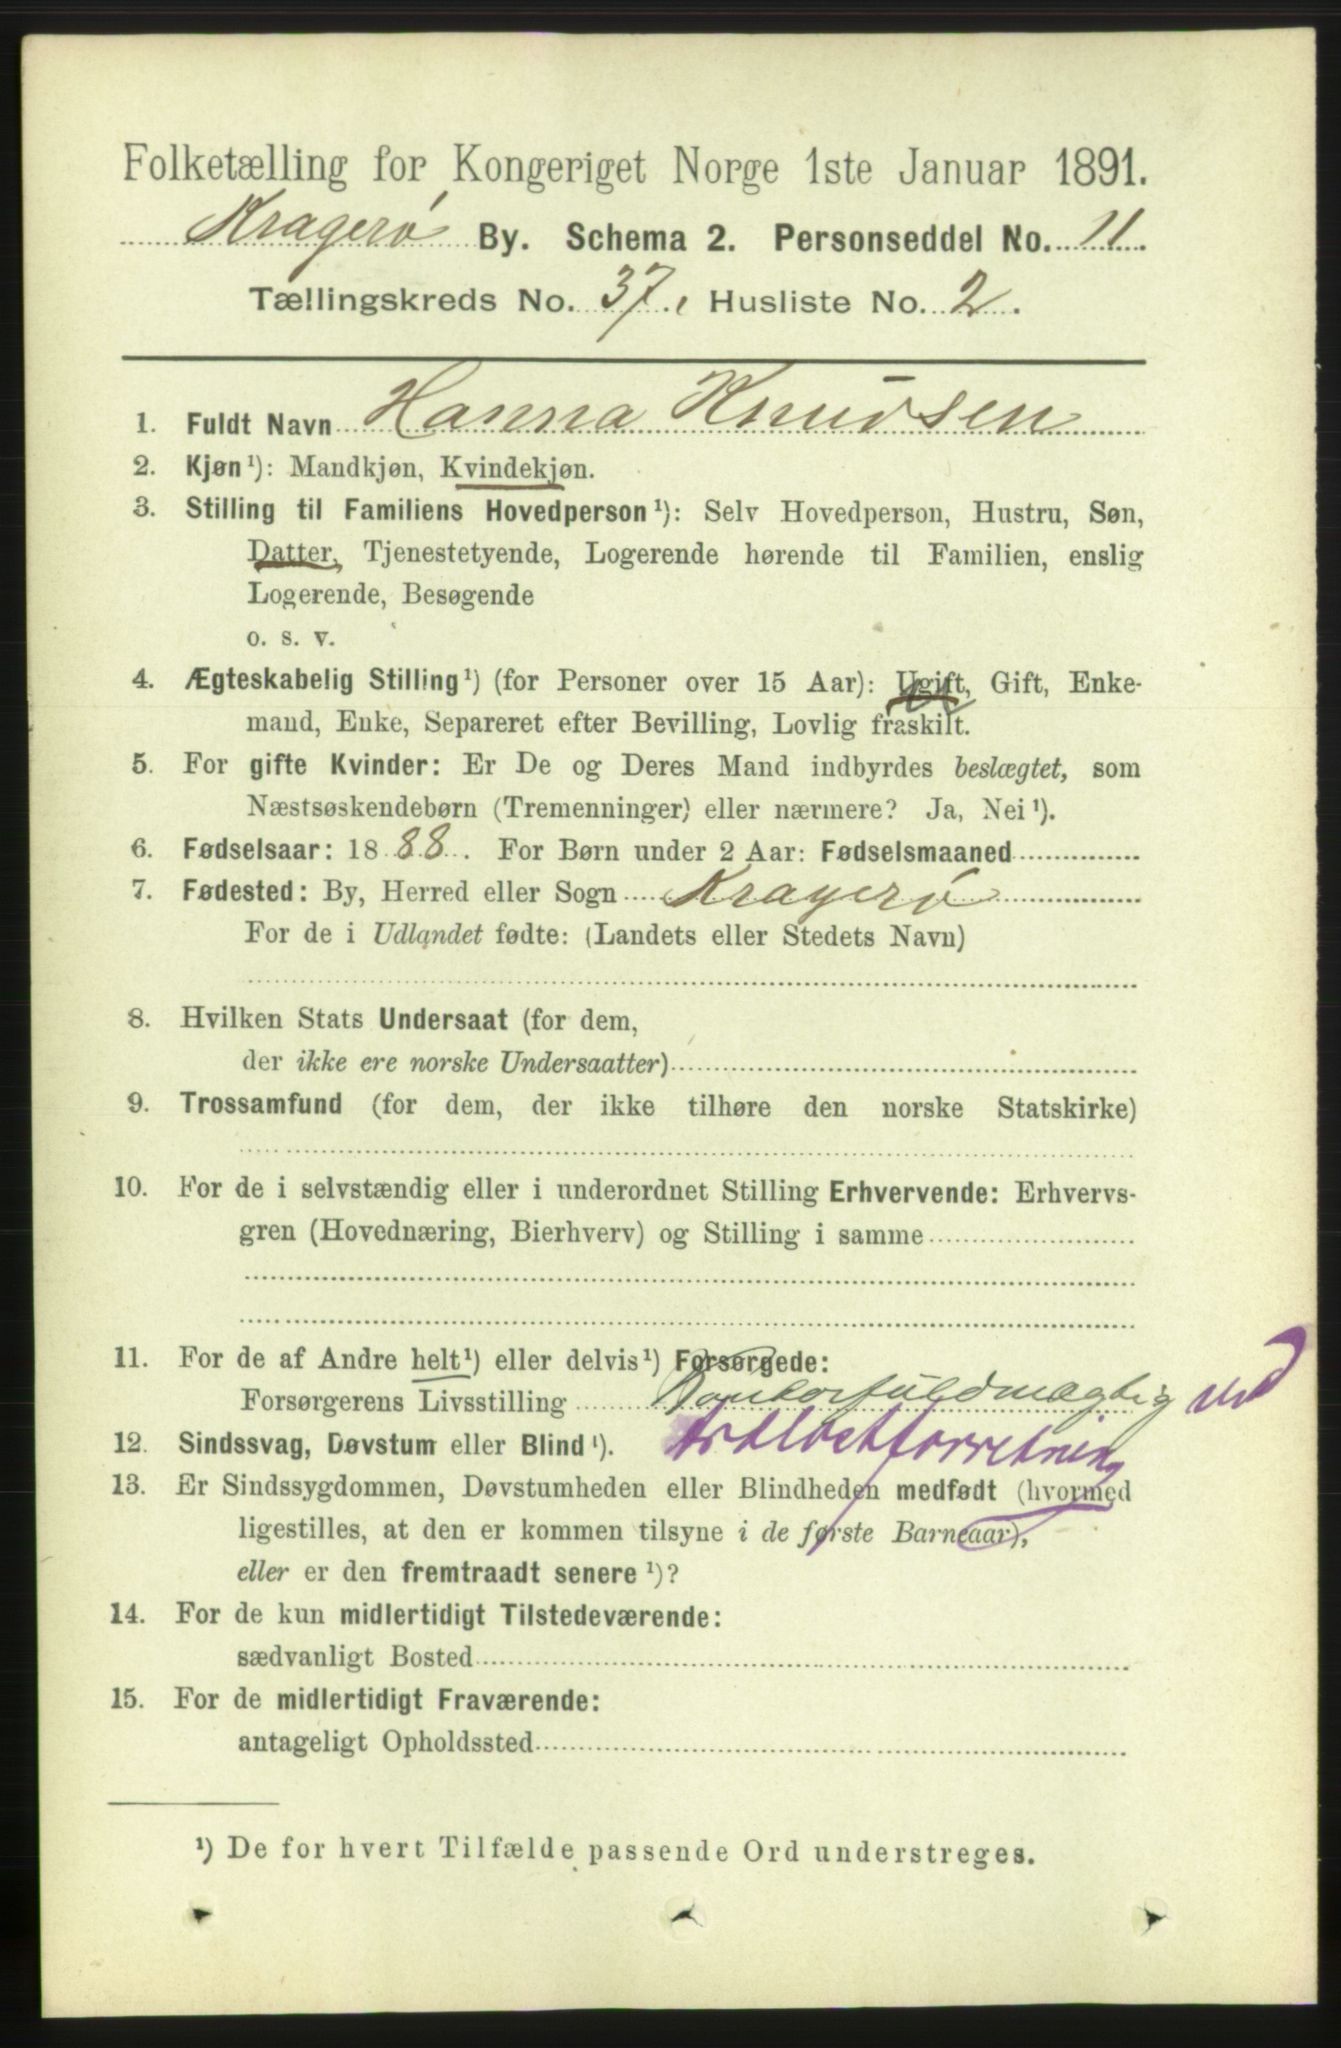 Folketælling for Kongeriget Norge 1ste Januar 1891.
Kragerø By. Schema 2. Personseddel No. 11.
Tællingskreds No. 37., Husliste No. 2.
1. Fuldt Navn Hanna Knudsen
2. Kjøn¹): Mandkjøn, Kvindekjøn.
3. Stilling til Familiens Hovedperson¹): Selv Hovedperson, Hustru, Søn,
Datter, Tjenestetyende, Logerende hørende til Familien, enslig
Logerende, Besøgende
o. s. v.
4. Ægteskabelig Stilling¹) (for Personer over 15 Aar): Ugift, Gift, Enke-
mand, Enke, Separeret efter Bevilling, Lovlig fraskilt.
5. For gifte Kvinder: Er De og Deres Mand indbyrdes beslægtet, som
Næstsøskendebørn (Tremenninger) eller nærmere? Ja, Nei¹).
6. Fødselsaar: 1888. For Børn under 2 Aar: Fødselsmaaned
7. Fødested: By, Herred eller Sogn Kragerø
For de i Udlandet fødte: (Landets eller Stedets Navn)
8. Hvilken Stats Undersaat (for dem,
der ikke ere norske Undersaatter)
9. Trossamfund (for dem, der ikke tilhøre den norske Statskirke)
10. For de i selvstændig eller i underordnet Stilling Erhvervende: Erhvervs-
gren (Hovednæring, Bierhverv) og Stilling i samme
11. For de af Andre helt¹) eller delvis¹) Forsørgede:
Forsørgerens Livsstilling Contorfuldmægtig ved
12. Sindssvag, Døvstum eller Blind¹).
13. Er Sindssygdommen, Døvstumheden eller Blindheden medfødt (hvormed
ligestilles, at den er kommen tilsyne i de første Barneaar),
eller er den fremtraadt senere¹)?
14. For de kun midlertidigt Tilstedeværende:
sædvanligt Bosted
15. For de midlertidigt Fraværende:
antageligt Opholdssted
¹) De for hvert Tilfælde passende Ord understreges.